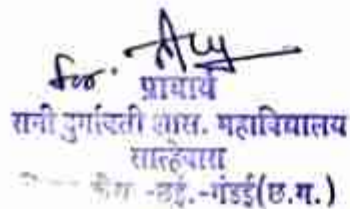 for.
प्राचार्य
रानी दुर्गावती शास. महाविद्यालय
साल्हेवारा
-छुई.-गंडई(छ.ग.)